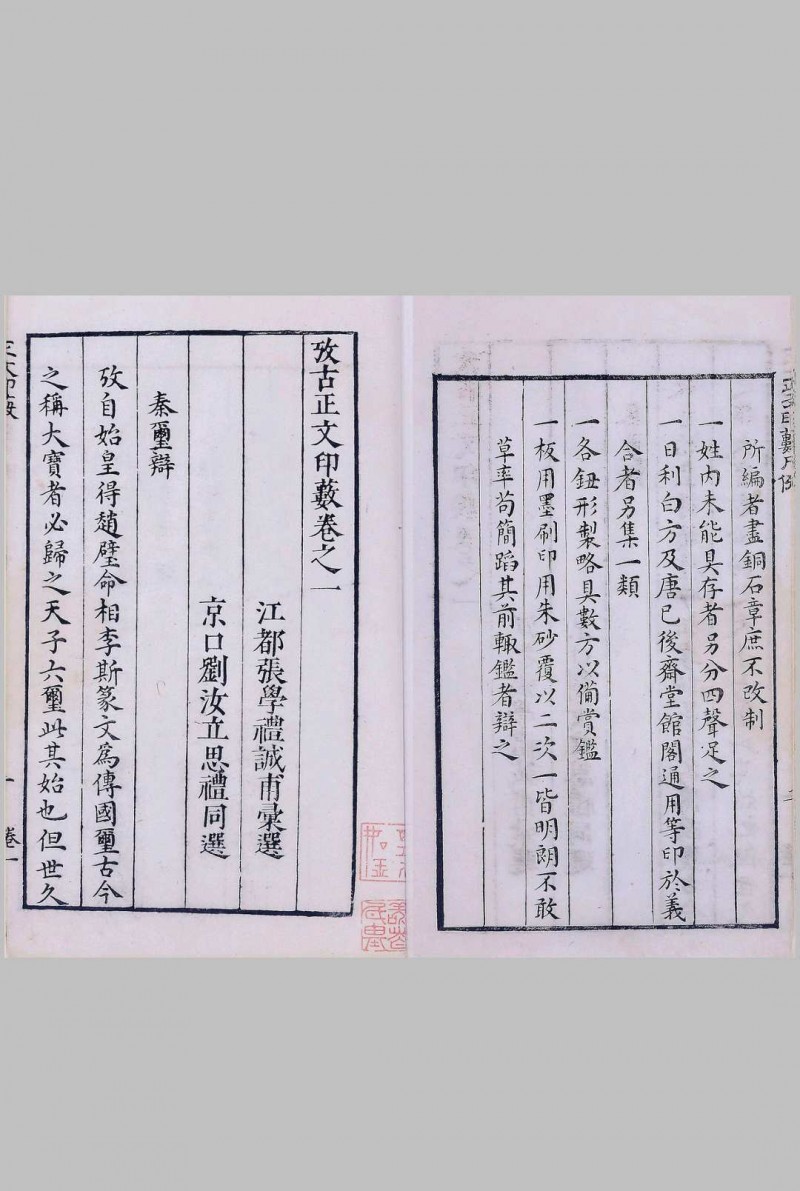 所編者盡銅石章庶不改制
一姓內未能具存者另分四聲足之
一日利白方及唐已後齋堂館閣通用等印於義
合者另集一類
一各鈕形製略具數方以備賞鑑
一板用墨刷印用朱砂覆以二次一皆明朗不敢
草率苟簡蹈其前輒鑑者辯之
攷古正文印藪卷之一
江都張學禮誠甫彙選
京口劉汝立思禮同選
秦璽辯
攷自始皇得趙璧命相李斯篆文爲傳國璽古今
之稱大寶者必歸之天子六璽此其始也但世久
卷一
一